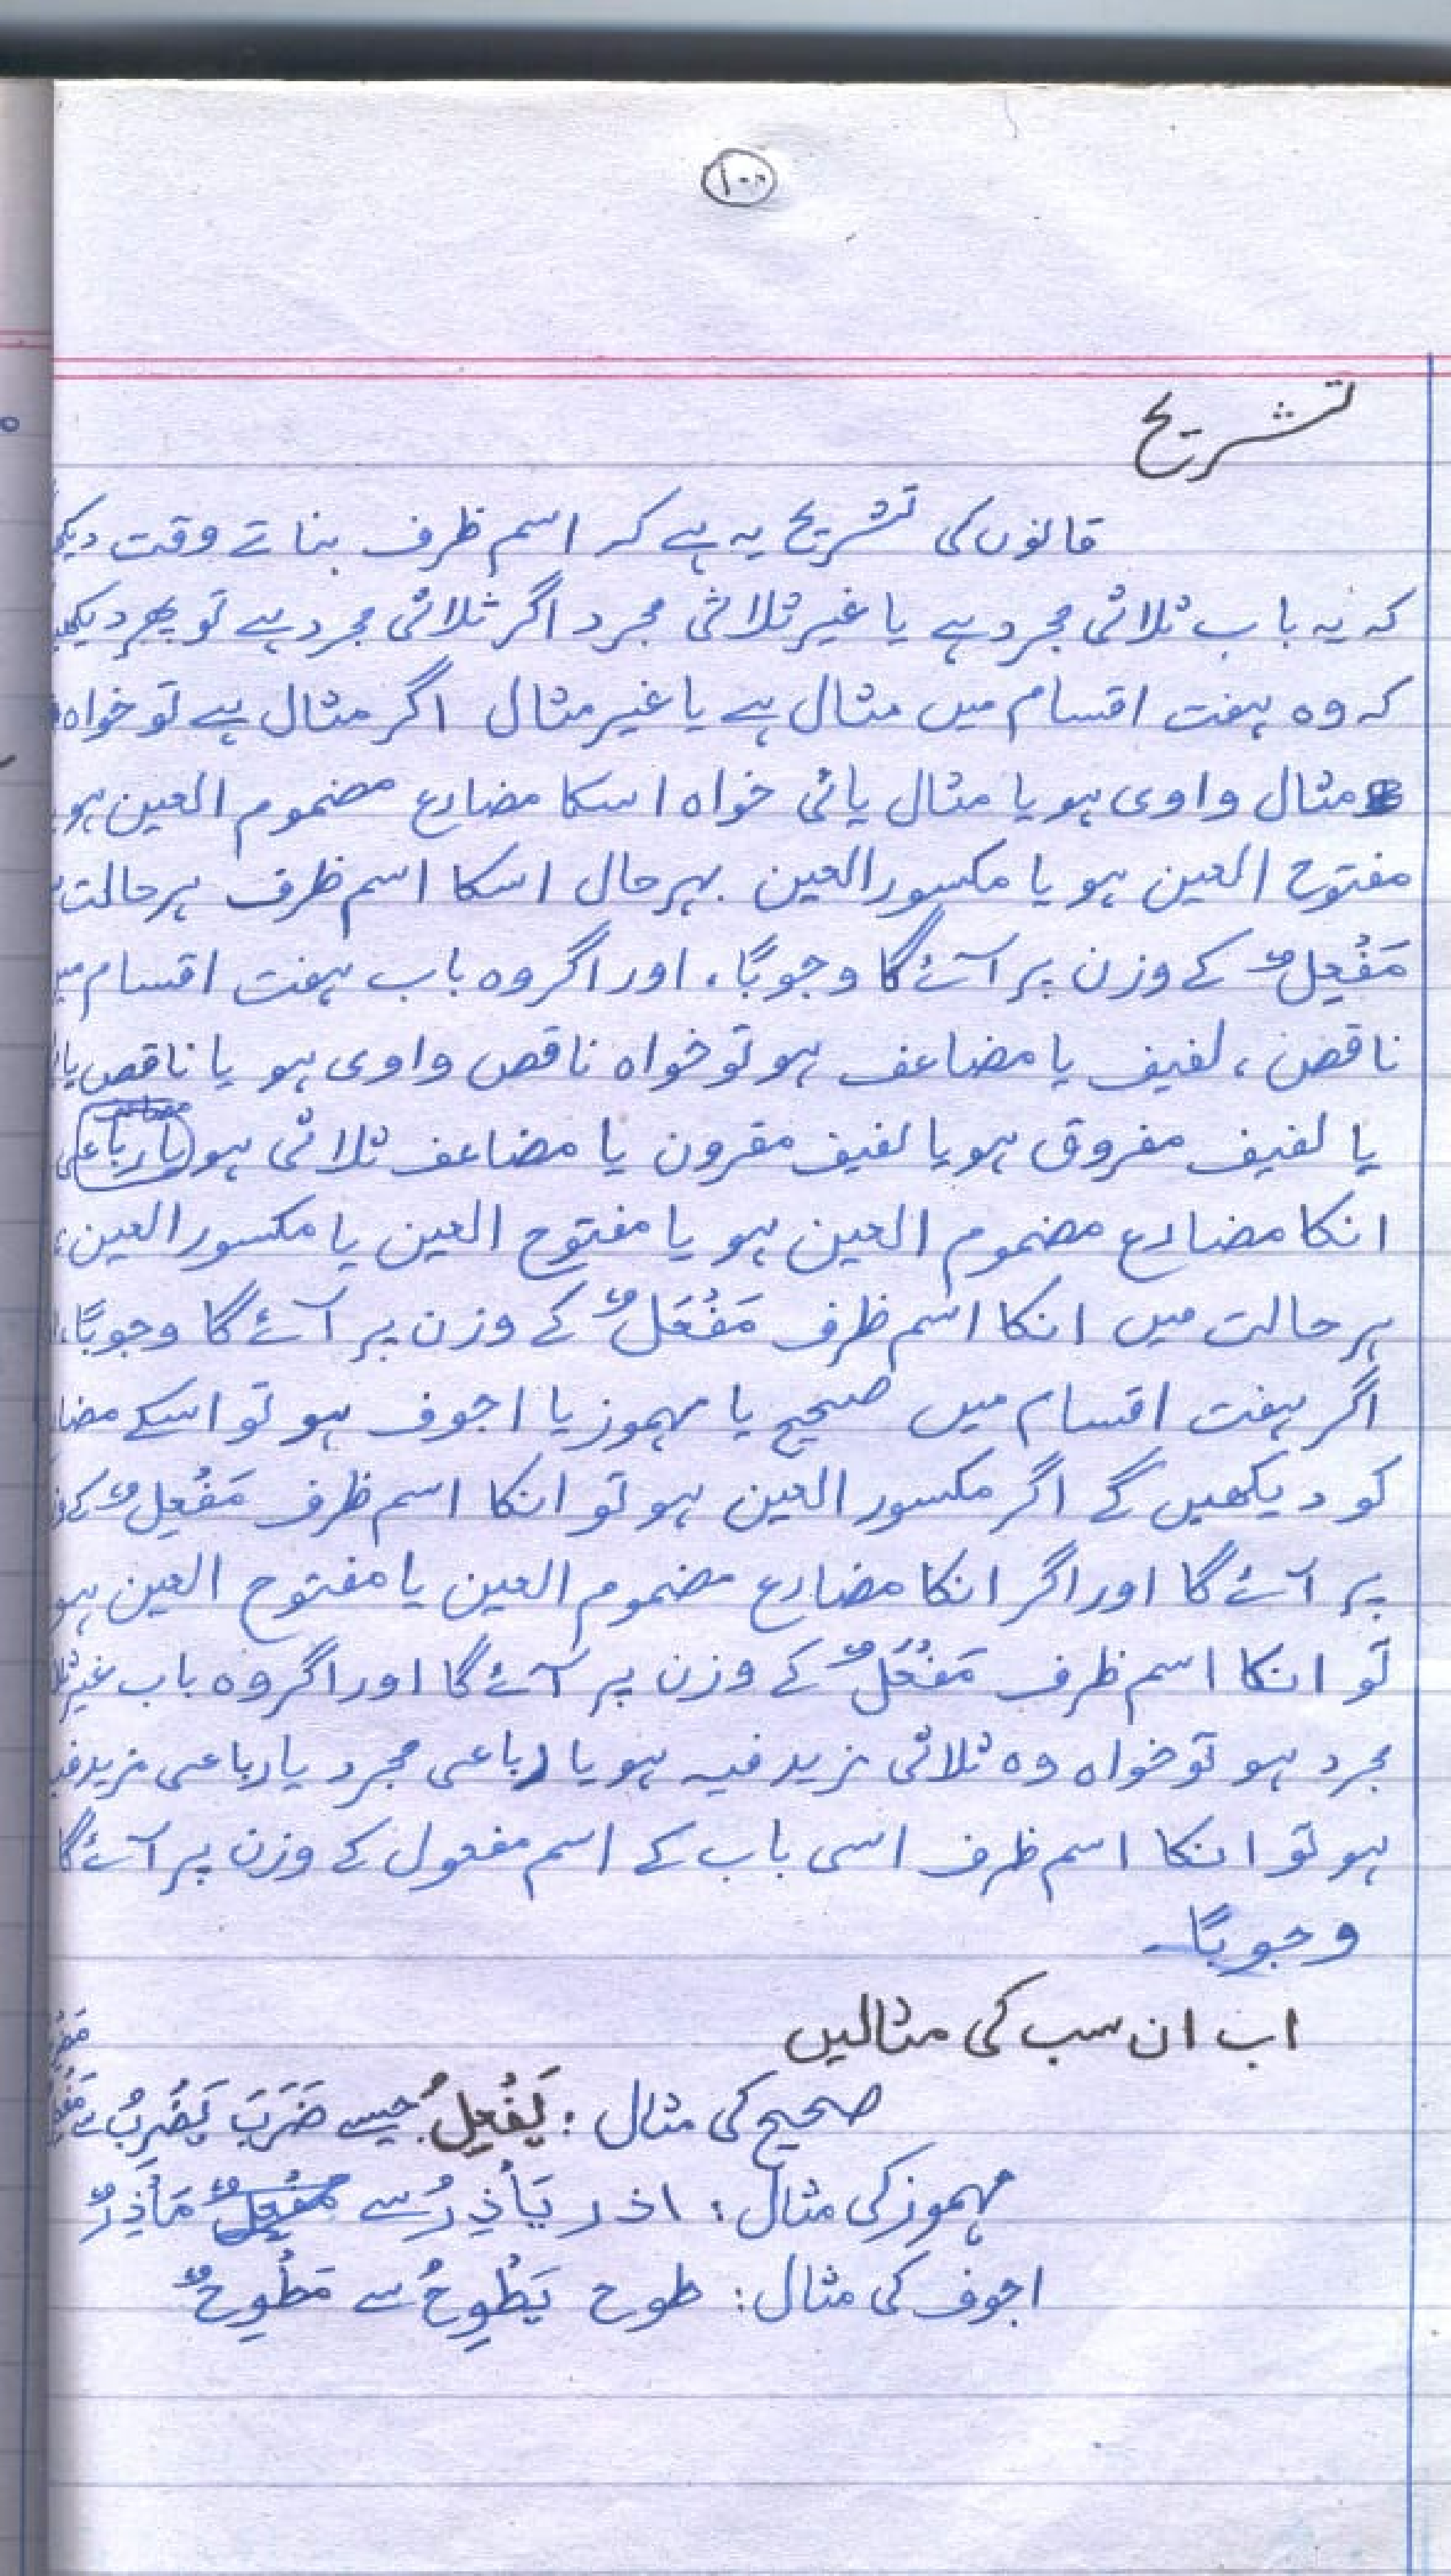 ۱۰۰
تشریح
قانون کی تشریح یہ ہے کہ اسم ظرف بناتے وقت
کہ یہ باب ثلاثی مجرد ہے یا غیر ثلاثی مجرد اگر ثلاثی مجرد ہے تو پھر
کہ وہ ہفت اقسام میں مثال ہے یا غیر مثال اگر مثال ہے تو خواہ
مثال واوی ہو یا مثال یائی خواہ اسکا مضارع مضموم العین ہو
مفتوح العین ہو یا مکسور العین بہرحال اسکا اسم ظرف ہر حالت
مَفْعِلٌ کے وزن پر آئے گا وجوبًا، اور اگر وہ باب ہفت اقسام
ناقص، لفیف یا مضاعف ہو تو خواہ ناقص واوی ہو یا ناقص
یا لفیف مفروق ہو یا لفیف مقرون یا مضاعف ثلاثی ہو یا رباعی
انکا مضارع مضموم العین ہو یا مفتوح العین یا مکسور العین،
ہر حالت میں انکا اسم ظرف مَفْعَلٌ کے وزن پر آئے گا وجوبًا،
اگر ہفت اقسام میں صحیح یا مہموز یا اجوف ہو تو اسکے
کو دیکھیں گے اگر مکسور العین ہو تو انکا اسم ظرف مَفْعِلٌ کے
پر آئے گا اور اگر انکا مضارع مضموم العین یا مفتوح العین ہو
تو انکا اسم ظرف مَفْعَلٌ کے وزن پر آئے گا اور اگر وہ باب غیر
مجرد ہو تو خواہ وہ ثلاثی مزید فیہ ہو یا رباعی مجرد یا رباعی مزید
ہو تو انکا اسم ظرف اسی باب کے اسم مفعول کے وزن پر آئے گا
وجوبًا۔
اب ان سب کی مثالیں
صحیح کی مثال: یَفْعِلُ جیسے ضَرَبَ یَضْرِبُ سے
مہموز کی مثال: اذر یَأْذِرُ سے مَأْذِرٌ
اجوف کی مثال: طوح یَطْوِحُ سے مَطْوِحٌ